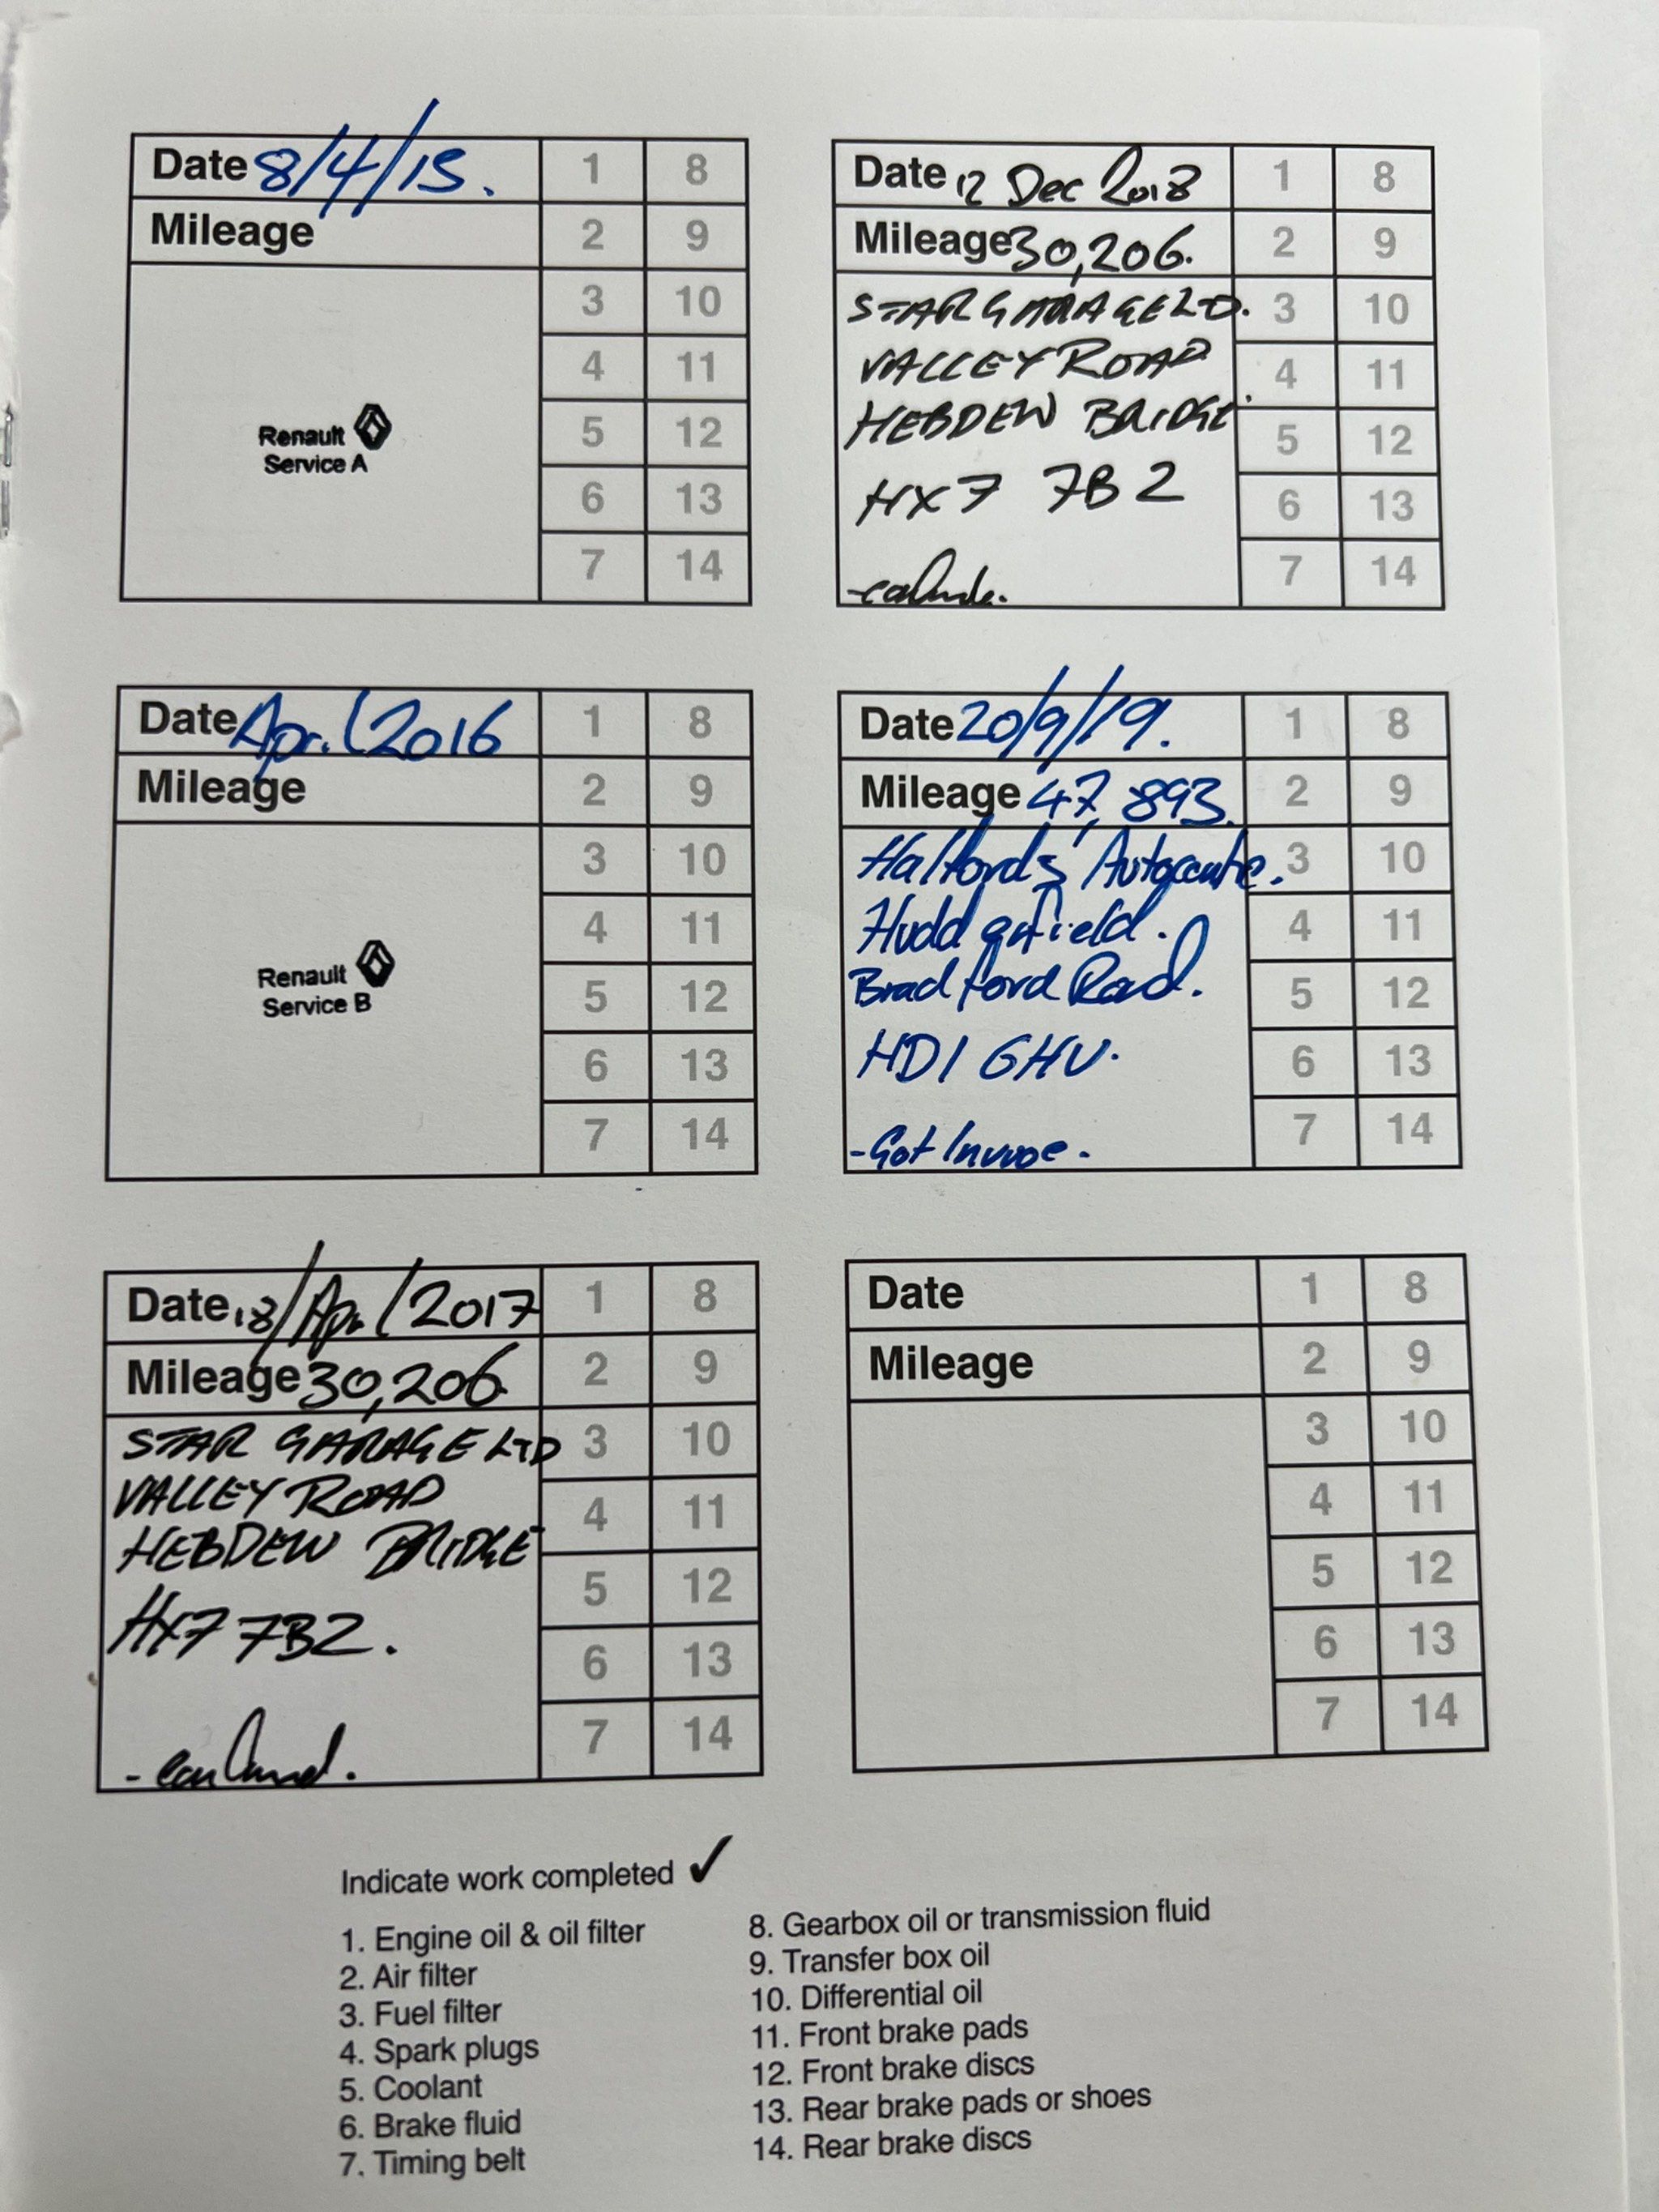 Date 8/4/15.
Mileage
Renault
Service A
1 8
2 9
3 10
4 11
5 12
6 13
7 14
Date 12 Dec 2018
Mileage 30,206.
STAR GARAGE LTD.
VALLEY ROAD
HEBDEN BRIDGE.
HX7 7BZ
1 8
2 9
3 10
4 11
5 12
6 13
7 14
Date April 2016
Mileage
Renault
Service B
1 8
2 9
3 10
4 11
5 12
6 13
7 14
Date 20/9/19.
Mileage 47,893.
Halfords Autocentre.
Huddersfield.
Bradford Road.
HD1 6HU.
-Got Invoice.
1 8
2 9
3 10
4 11
5 12
6 13
7 14
Date 18/Apr/2017
Mileage 30,206
STAR GARAGE LTD
VALLEY ROAD
HEBDEN BRIDGE
HX7 7BZ.
1 8
2 9
3 10
4 11
5 12
6 13
7 14
Date
Mileage
1 8
2 9
3 10
4 11
5 12
6 13
7 14
Indicate work completed ✓
1. Engine oil & oil filter
2. Air filter
3. Fuel filter
4. Spark plugs
5. Coolant
6. Brake fluid
7. Timing belt
8. Gearbox oil or transmission fluid
9. Transfer box oil
10. Differential oil
11. Front brake pads
12. Front brake discs
13. Rear brake pads or shoes
14. Rear brake discs